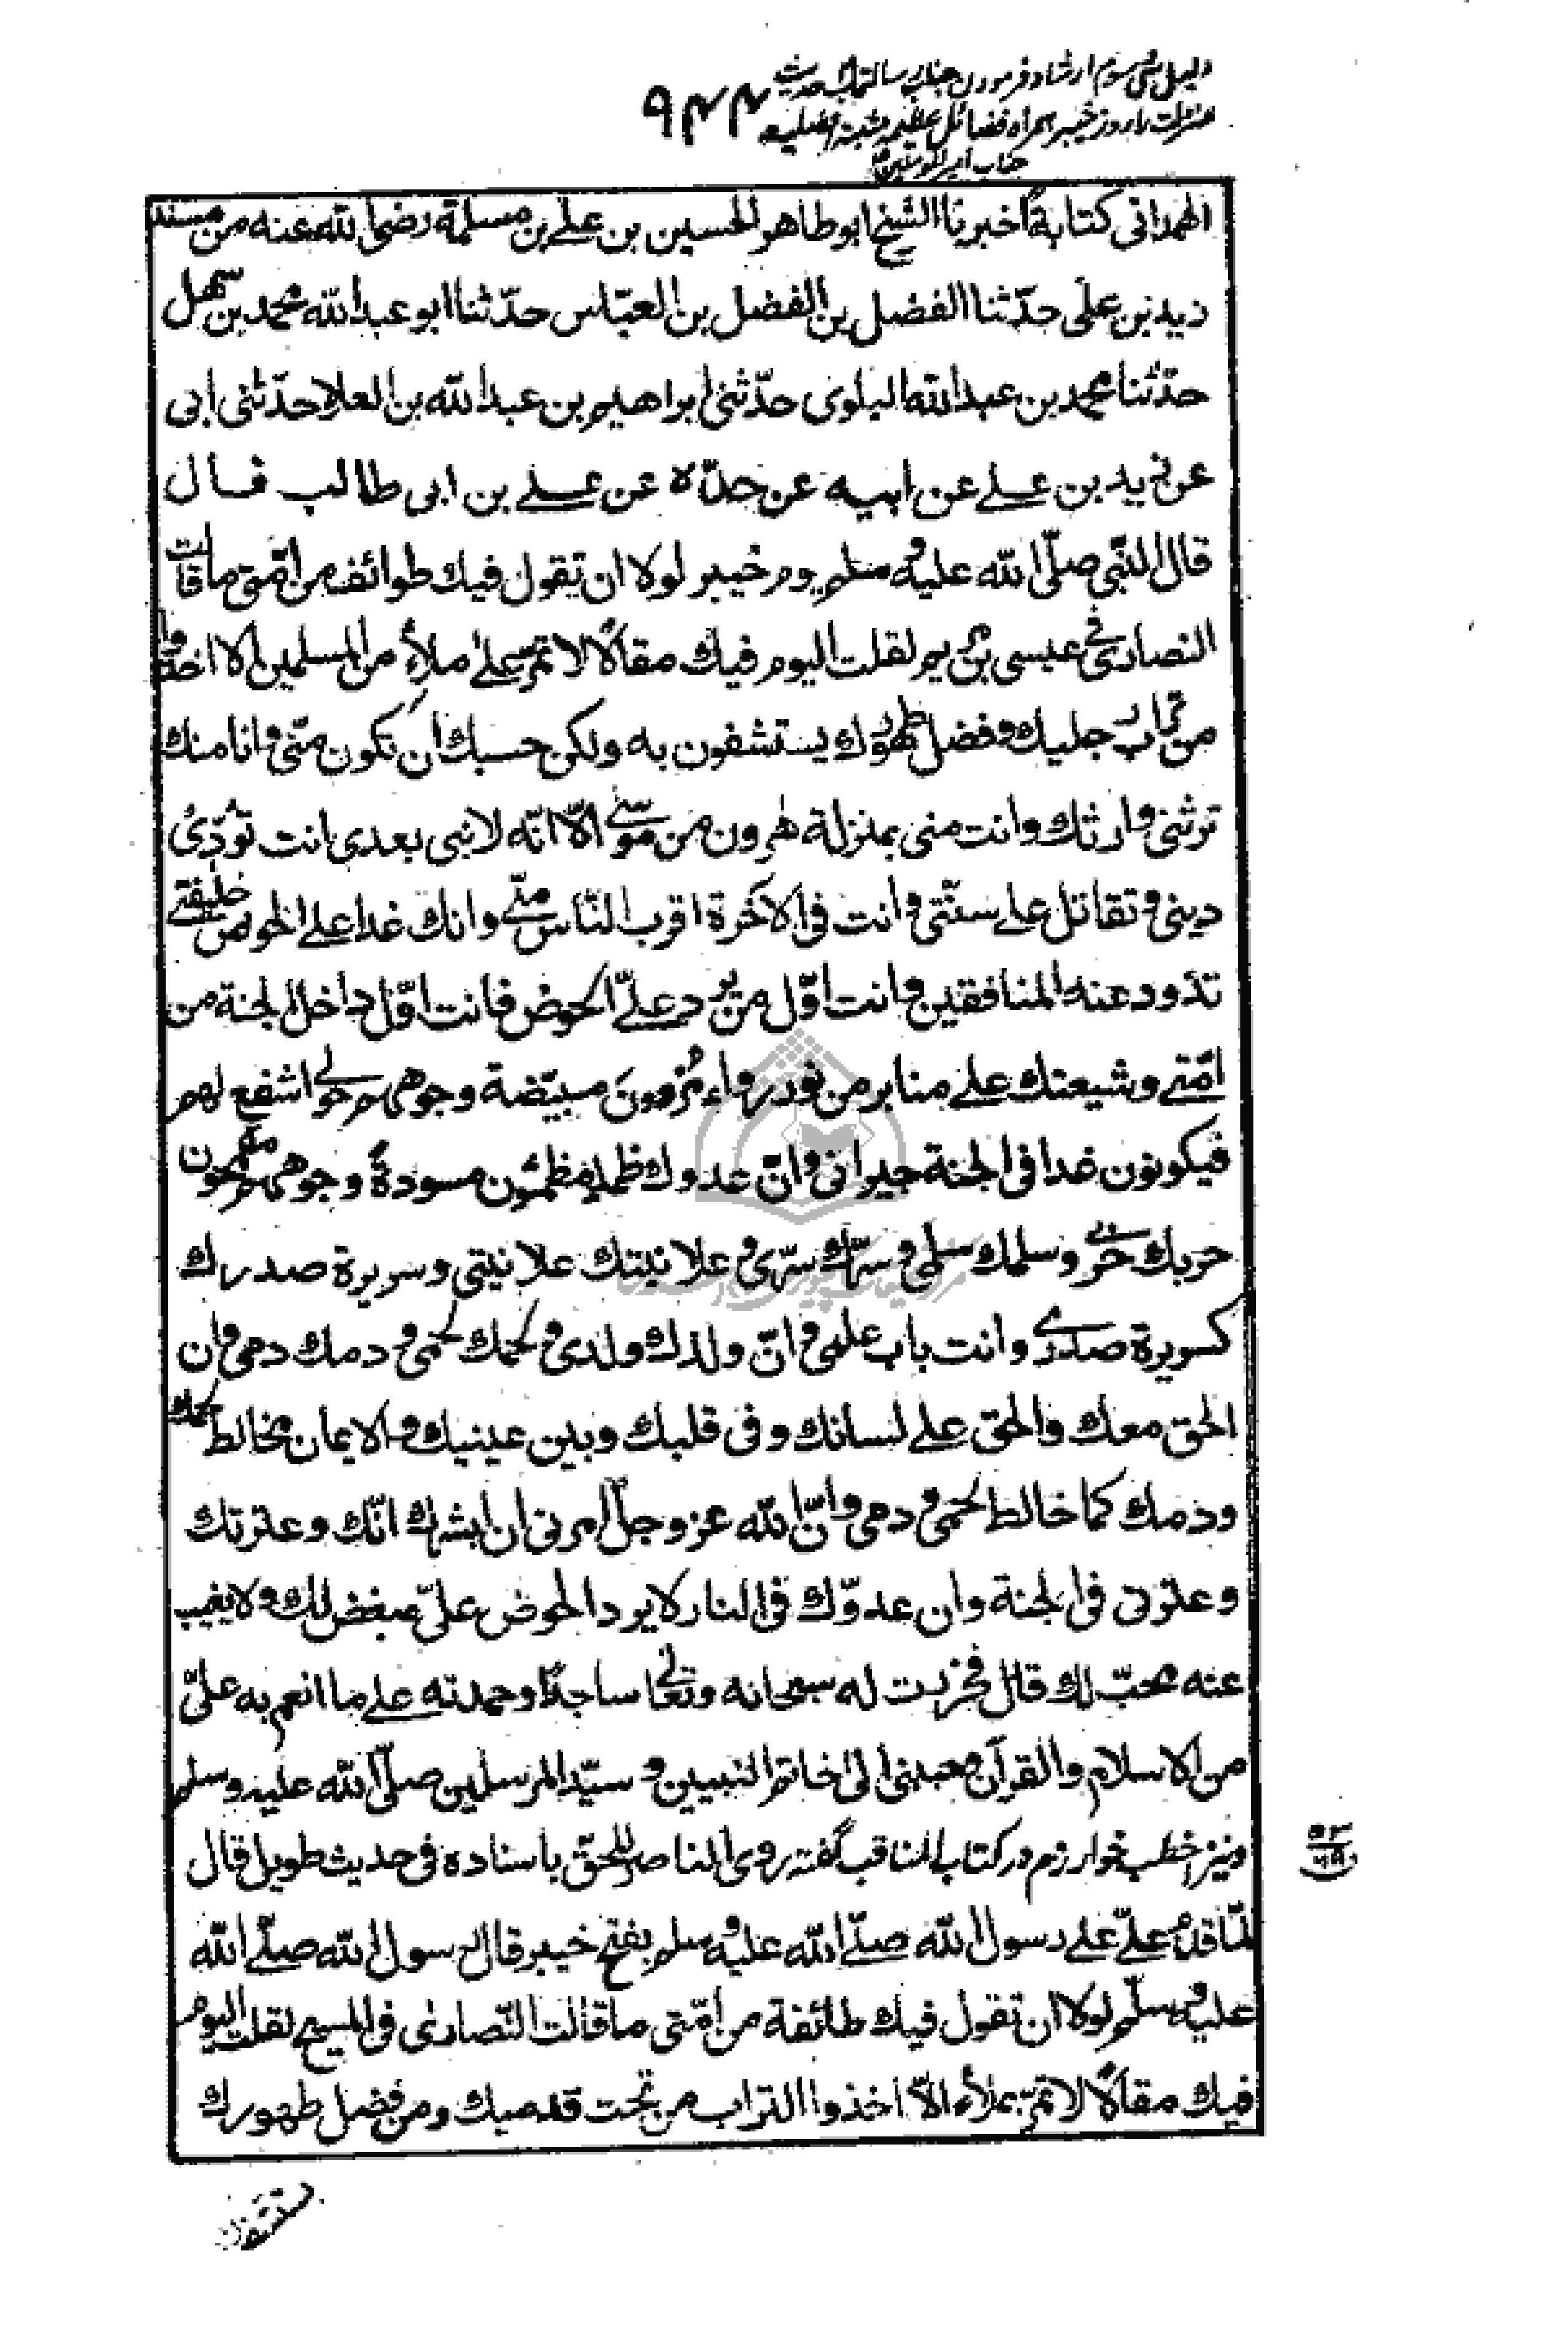 دلیل سی و سوم ارشاد فرمودن جناب رسالتمآب حدیث
منزلت را روز خیبر همراه فضائل عظیمه مثبته افضلیت
جناب امیر المؤمنین
۹۴۴
الهمدانی کتابةً اخبرنا الشیخ ابو طاهر الحسین بن علی بن مسلمة رضی الله عنه من مسند
زید بن علی حدّثنا الفضل بن الفضل بن العبّاس حدّثنا ابو عبد الله محمد بن سهل
حدّثنا محمد بن عبد الله البلوی حدّثنی ابراهیم بن عبد الله بن العلا حدّثنی ابی
عن زید بن علی عن ابیه عن جدّه عن علی بن ابی طالب قال
قال النّبی صلّی الله علیه و سلم یوم خیبر لولا ان تقول فیك طوائف من امّتی ما قالت
النصاری فی عیسی بن مریم لقلت الیوم فیك مقالًا لا تمرّ علی ملأٍ من المسلمین الا اخذوا
من تراب جلیك و فضل طهورك یستشفون به ولكن حسبك أن تكون منّی و انا منك
ترثنی و ارثك وانت منی بمنزلة هرون من موسی الّا انّه لا نبی بعدی انت تؤدّی
دینی و تقاتل علی سنّتی و انت فی الآخرة اقرب النّاس منّی و انك غدا علی الحوض خلیفتی
تذود عنه المنافقین و انت اوّل من یرد علیّ الحوض فانت اوّل داخل الجنة من
امّتی و شیعتك علی منابر من نور رواء مرویون مبیّضة وجوههم حولی اشفع لهم
فیكونون غدا فی الجنة جیرانی و انّ عدوك ظماء مظمئون مسودةً وجوههم مقمحون
حربك حربی وسلمك سلمی و سرّك سرّی و علانیتك علانیتی و سریرة صدرك
كسریرة صدری و انت باب علمی و انّ ولدك ولدی و لحمك لحمی و دمك دمی و ان
الحق معك والحق علی لسانك و فی قلبك و بین عینیك و الایمان مخالط لحمك
و دمك كما خالط لحمی و دمی و انّ الله عز و جلّ امرنی ان ابشرك انّك و عترتك
و عترتی فی الجنة وان عدوّك فی النار لا یرد الحوض علیّ مبغض لك و لا یغیب
عنه محبّ لك قال فخررت له سبحانه و تعالی ساجدًا و حمدته علی ما انعم به علیّ
من الاسلام والقرآن و حببنی الی خاتم النبیین و سیّد المرسلین صلّی الله علیه و سلم
و نیز اخطب خوارزم در كتاب المناقب گفته روی الناصر للحقّ باسناده فی حدیث طویل قال
لمّا قدم علیّ علی رسول الله صلّی الله علیه و سلم بفتح خیبر قال رسول الله صلّی الله
علیه و سلّم لولا ان تقول فیك طائفة من امّتی ما قالت النّصاری فی المسیح لقلت الیوم
فیك مقالًا لا تمرّ بملأء الّا اخذوا التراب من تحت قدمیك و من فضل طهورك
یستشفون